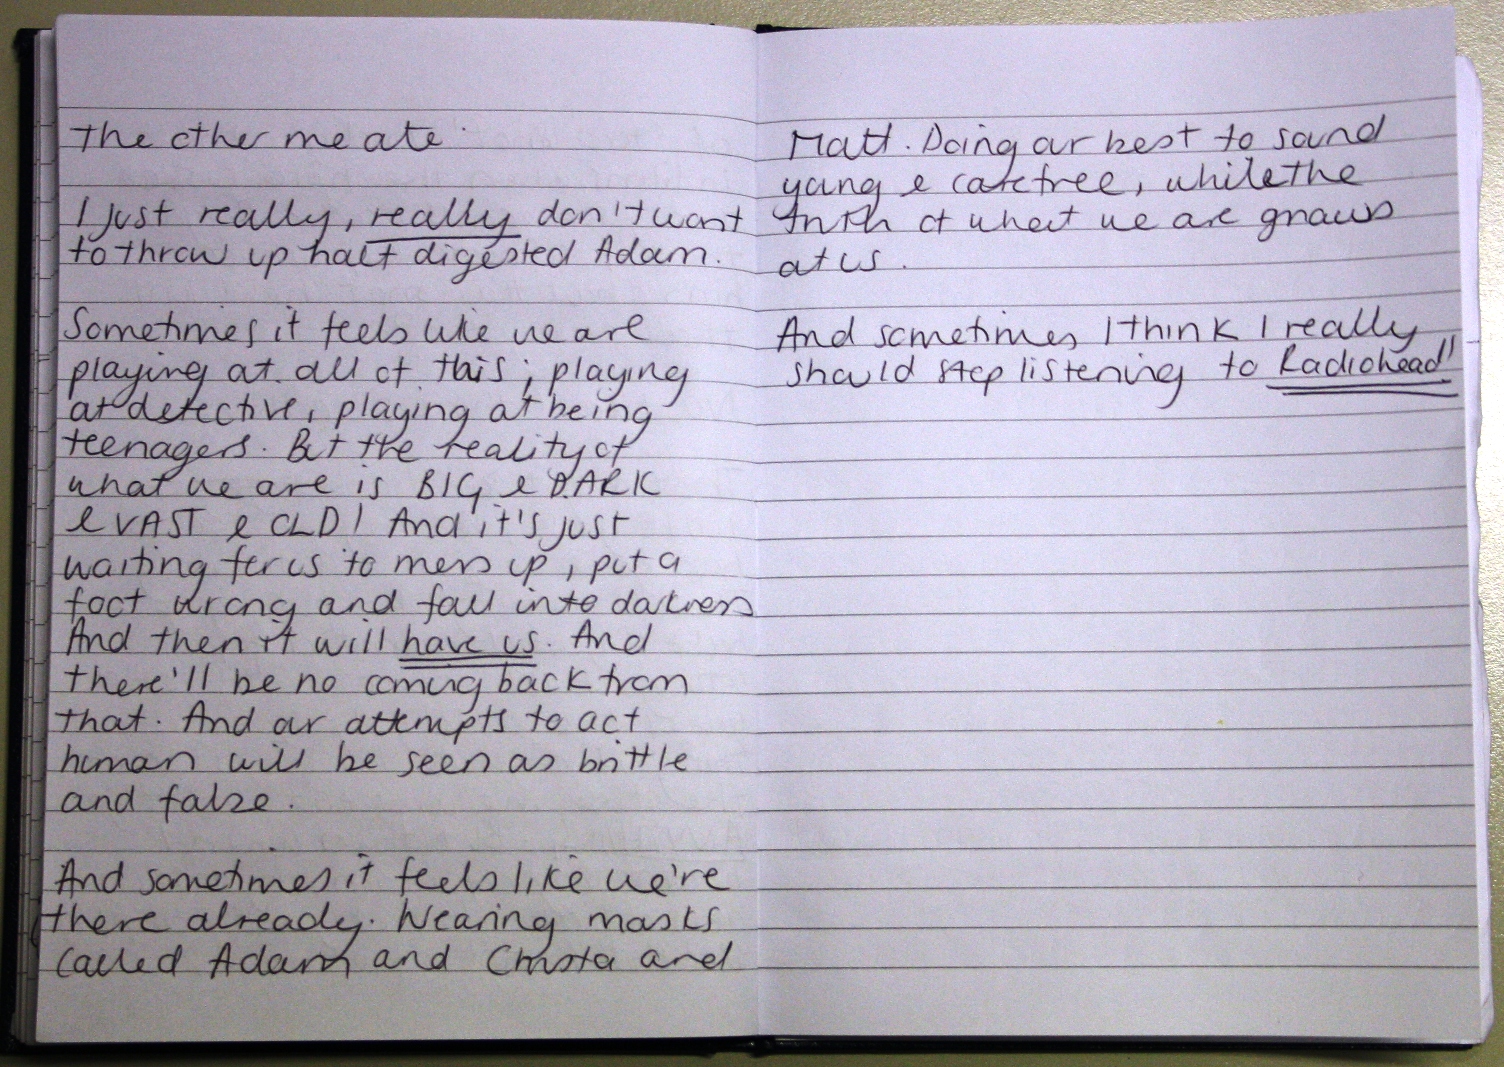 The other me ate.
I just really, really don't want
to throw up half digested Adam.
Sometimes it feels like we are
playing at all of this; playing
at detective, playing at being
teenagers. But the reality of
what we are is BIG & DARK
& VAST & OLD! And it's just
waiting for us to mess up, put a
foot wrong and fall into darkness
And then it will have us. And
there'll be no coming back from
that. And our attempts to act
human will be seen as brittle
and false.
And sometimes it feels like we're
there already. Wearing masks
called Adam and Christa and
Matt. Doing our best to sound
young & carefree, while the
truth of what we are gnaws
at us.
And sometimes I think I really
should stop listening to Radiohead!!